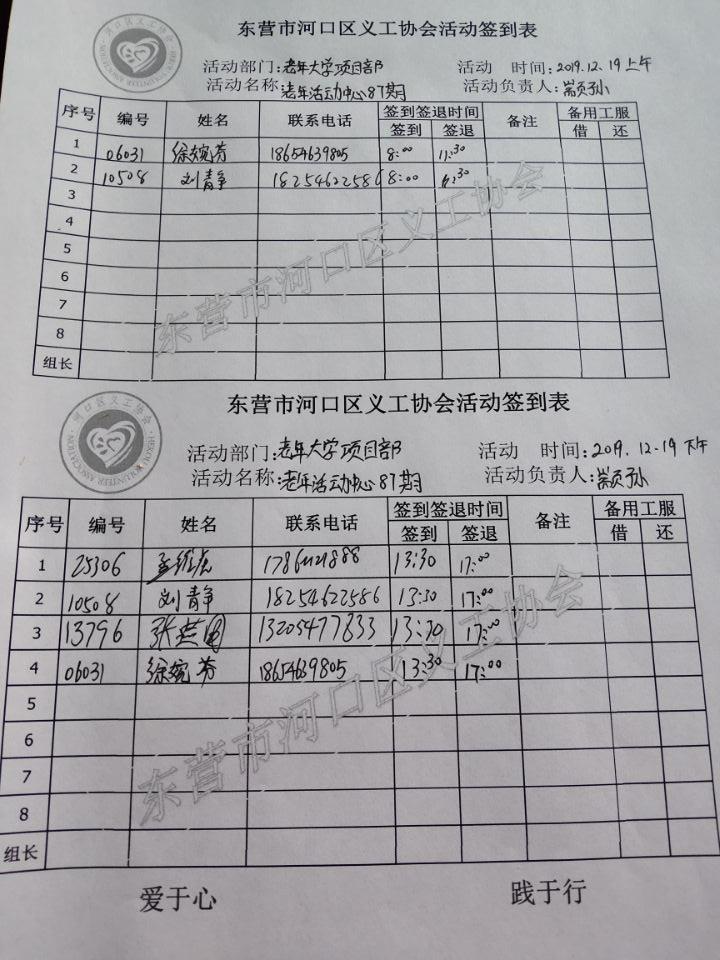 东营市河口区义工协会活动签到表
河口区义工协会
HEKOU VOLUNTEER ASSOCIATION
活动部门:老年大学项目部 活动 时间:2019.12.19上午
活动名称:老年活动中心87期 活动负责人:
序号 编号 姓名 联系电话 签到签退时间 备注 备用工服
签到 签退 借 还
1 06031 徐婉芬 18654639805 8:00 11:30
2 10508 刘青争 18254622586 8:00 11:30
3
4
5
6
7
8
组长
东营市河口区义工协会
东营市河口区义工协会活动签到表
河口区义工协会
HEKOU VOLUNTEER ASSOCIATION
活动部门:老年大学项目部 活动 时间:2019.12.19下午
活动名称:老年活动中心87期 活动负责人:
序号 编号 姓名 联系电话 签到签退时间 备注 备用工服
签到 签退 借 还
1 25306 13:30 17:00
2 10508 刘青争 18254622586 13:30 17:00
3 13796 13205477833 13:30 17:00
4 06031 徐婉芬 18654639805 13:30 17:00
5
6
7
8
组长
东营市河口区义工协会
爱于心 践于行